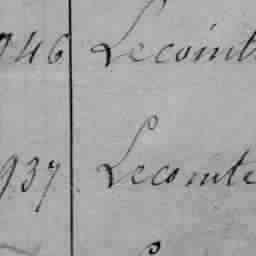 946 Lecoint
937 Lecomte